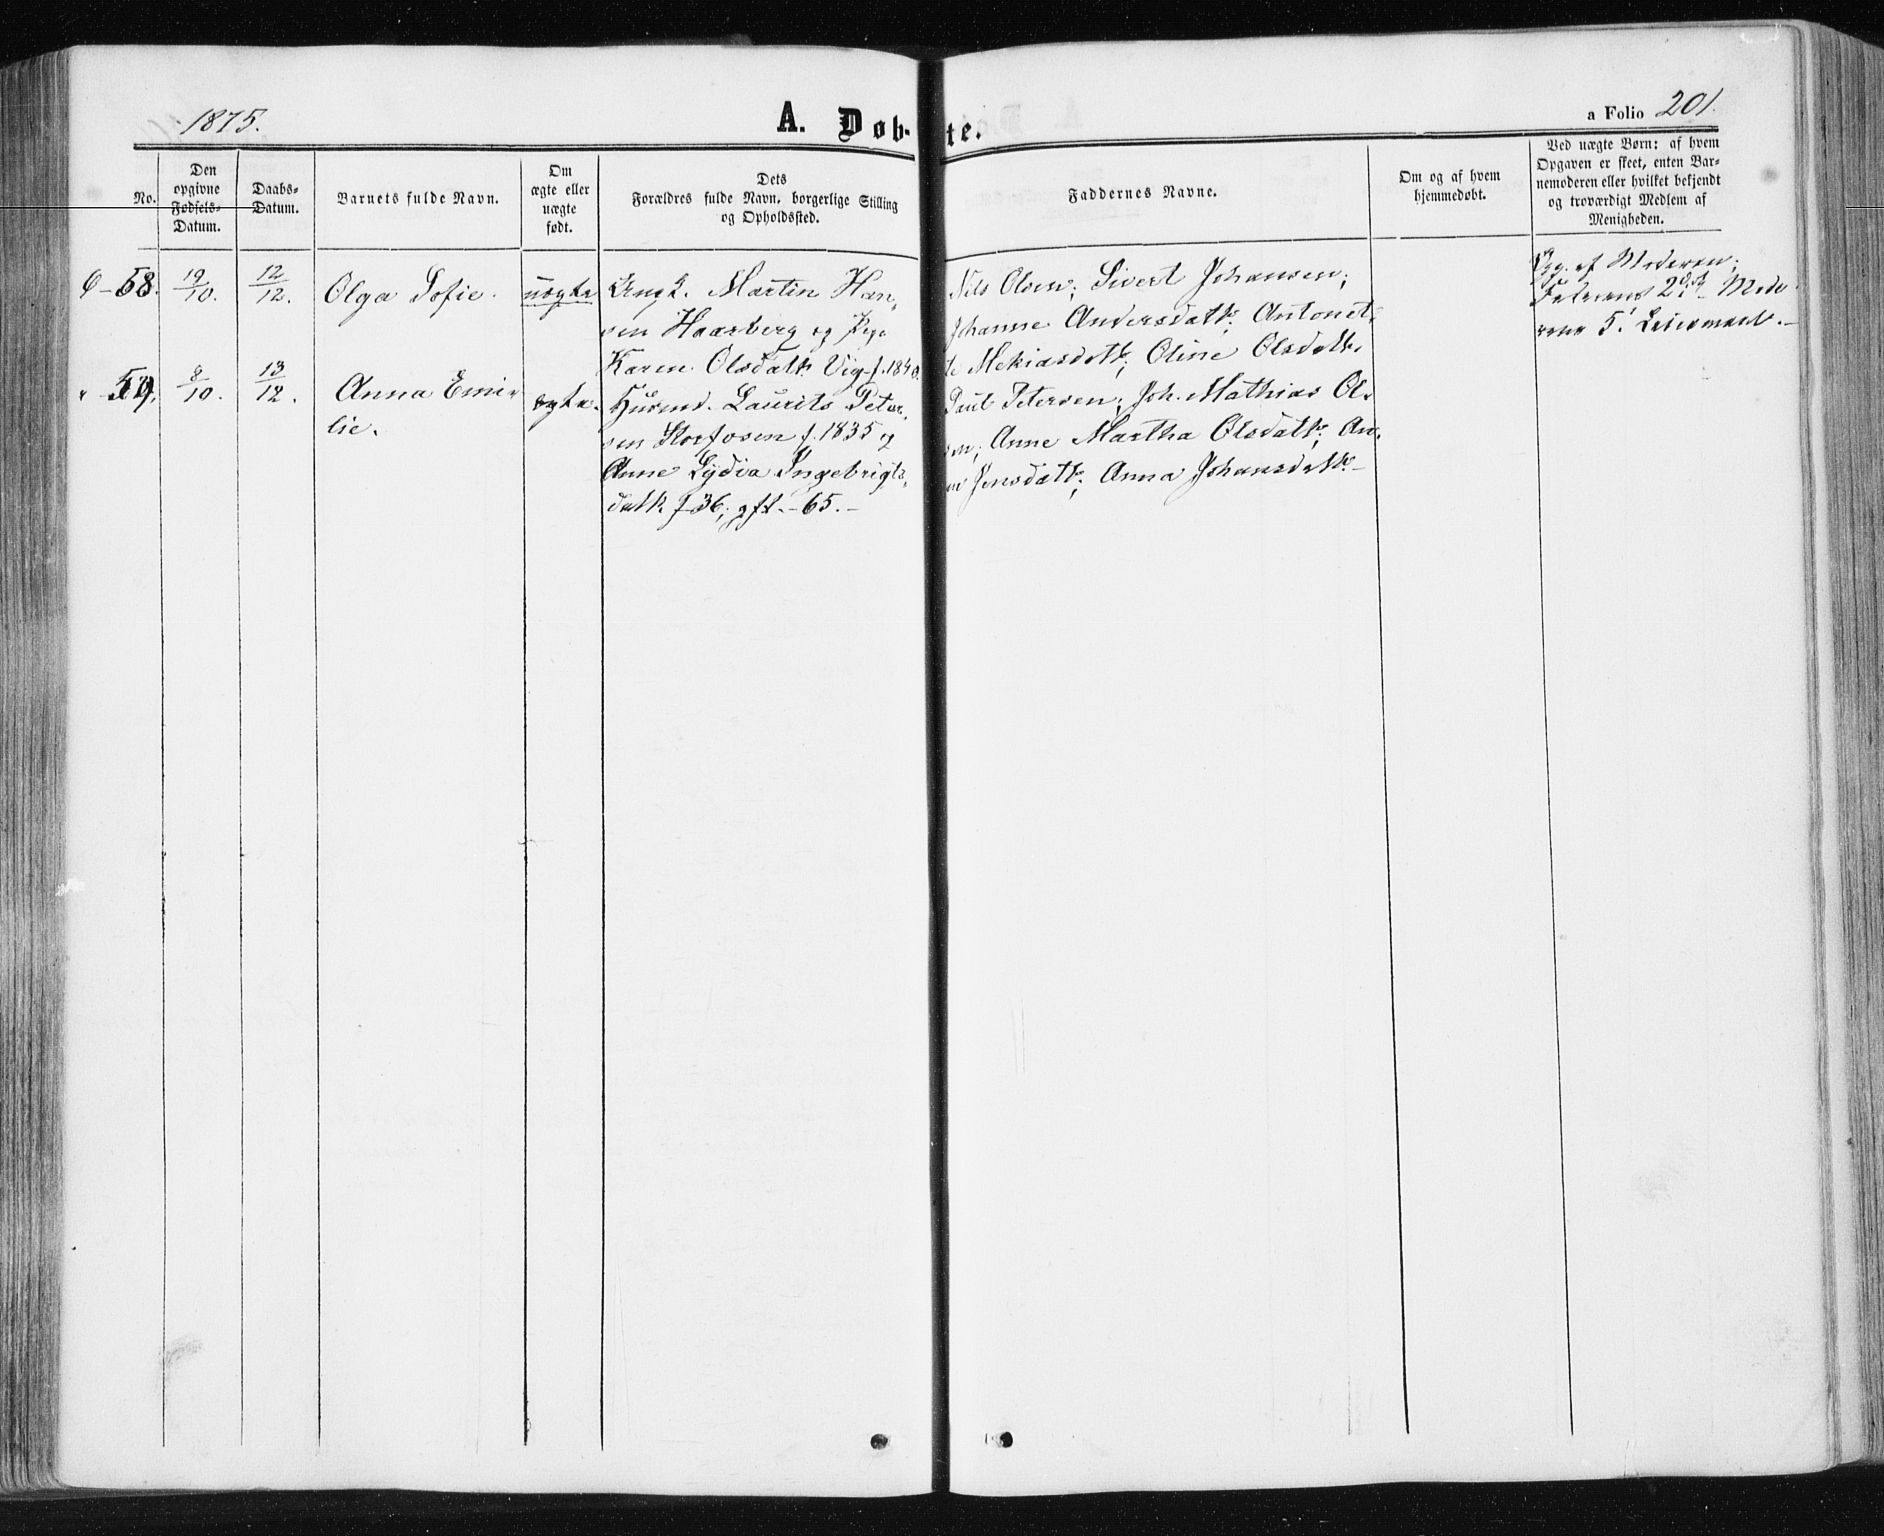 1875.
A. Døb-te.
a Folio 201.
No.
Den opgivne Fødsels-Datum.
Daabs-Datum.
Barnets fulde Navn.
Om ægte eller uægte født.
Dets Forældres fulde Navn, borgerlige Stilling og Opholdssted.
Faddernes Navne.
Om og af hvem hjemmedøbt.
Ved uægte Børn: af hvem Opgaven er skeet, enten Barnemoderen eller hvilket bekjendt og troværdigt Medlem af Menigheden.
58. 19/10. 12/12. Olga Sofie. uægte Ungk. Martin Han-
sen Haarberg og Pige
Karen Olsdatr. Vig f. 1840.
Nils Olsen; Sivert Johansen;
Johanne Andersdatr; Antonet-
te Mekiasdatr; Oline Olsdatr.
Opg. af Moderen;
Faderens 2det Mode-
rens 5. Leiermaal.
59. 8/10. 13/12. Anna Emi-
lie.
ægte. Husmd. Laurits Peter-
sen Storfosen f. 1835 og
Anne Lydia Ingebrigts-
datr. f 36; gft. - 65.
Paul Petersen; Joh. Mathias Ol-
sen; Anne Martha Olsdatr; An-
ne Jensdatr; Anna Johansdatr